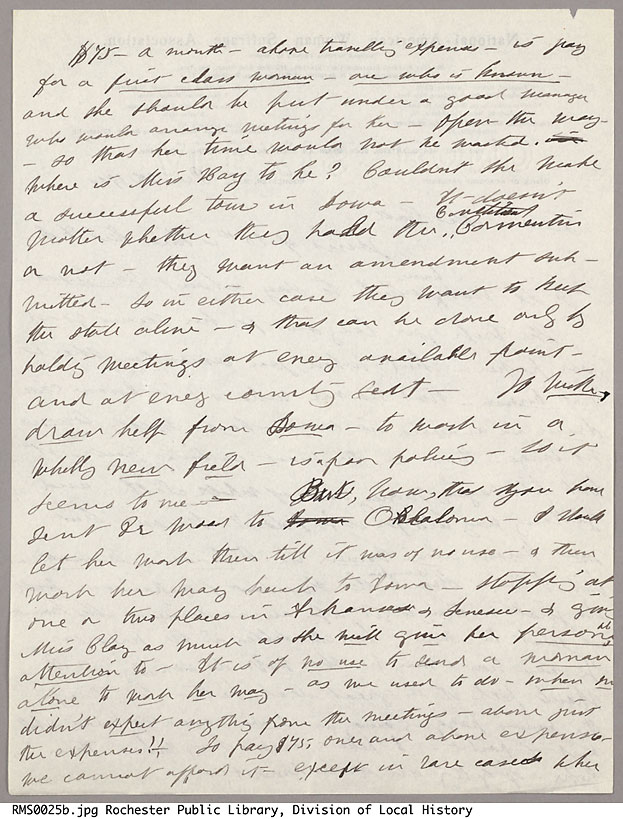 $75- a month - above travelling expenses - is pay
for a first class woman - one who is known -
and she should be put under a good manager
who would arrange meetings for her - open the way -
- so that her time would not be wasted.
Where is Miss Hay to be? Couldn't she make
a successful tour in Iowa - It doesn't
matter whether they hold the Constitutional Convention
or not - they want an amendment sub-
mitted - So in either case they want to keep
the state alive - & that can be done only by
holding meetings at every available point -
and at every county seat - To with-
draw help from Iowa - to work in a
wholly new field - is a poor policy - So it
seems to me - But, now, that you have
sent Dr to Oklahoma - I should
let her work there till it was of no use - & then
work her way back to Iowa - stopping at
one or two places in Arkansas & - & give
Miss Clay as much as she will give her personal
attention to - It is of no use to send a woman
alone to work her way - as we used to do - when we
didn't expect anything from the meetings - above just
the expenses!! To pay $75, over and above expenses -
we cannot afford it - except in rare cases when
RMS0025b.jpg Rochester Public Library, Division of Local History